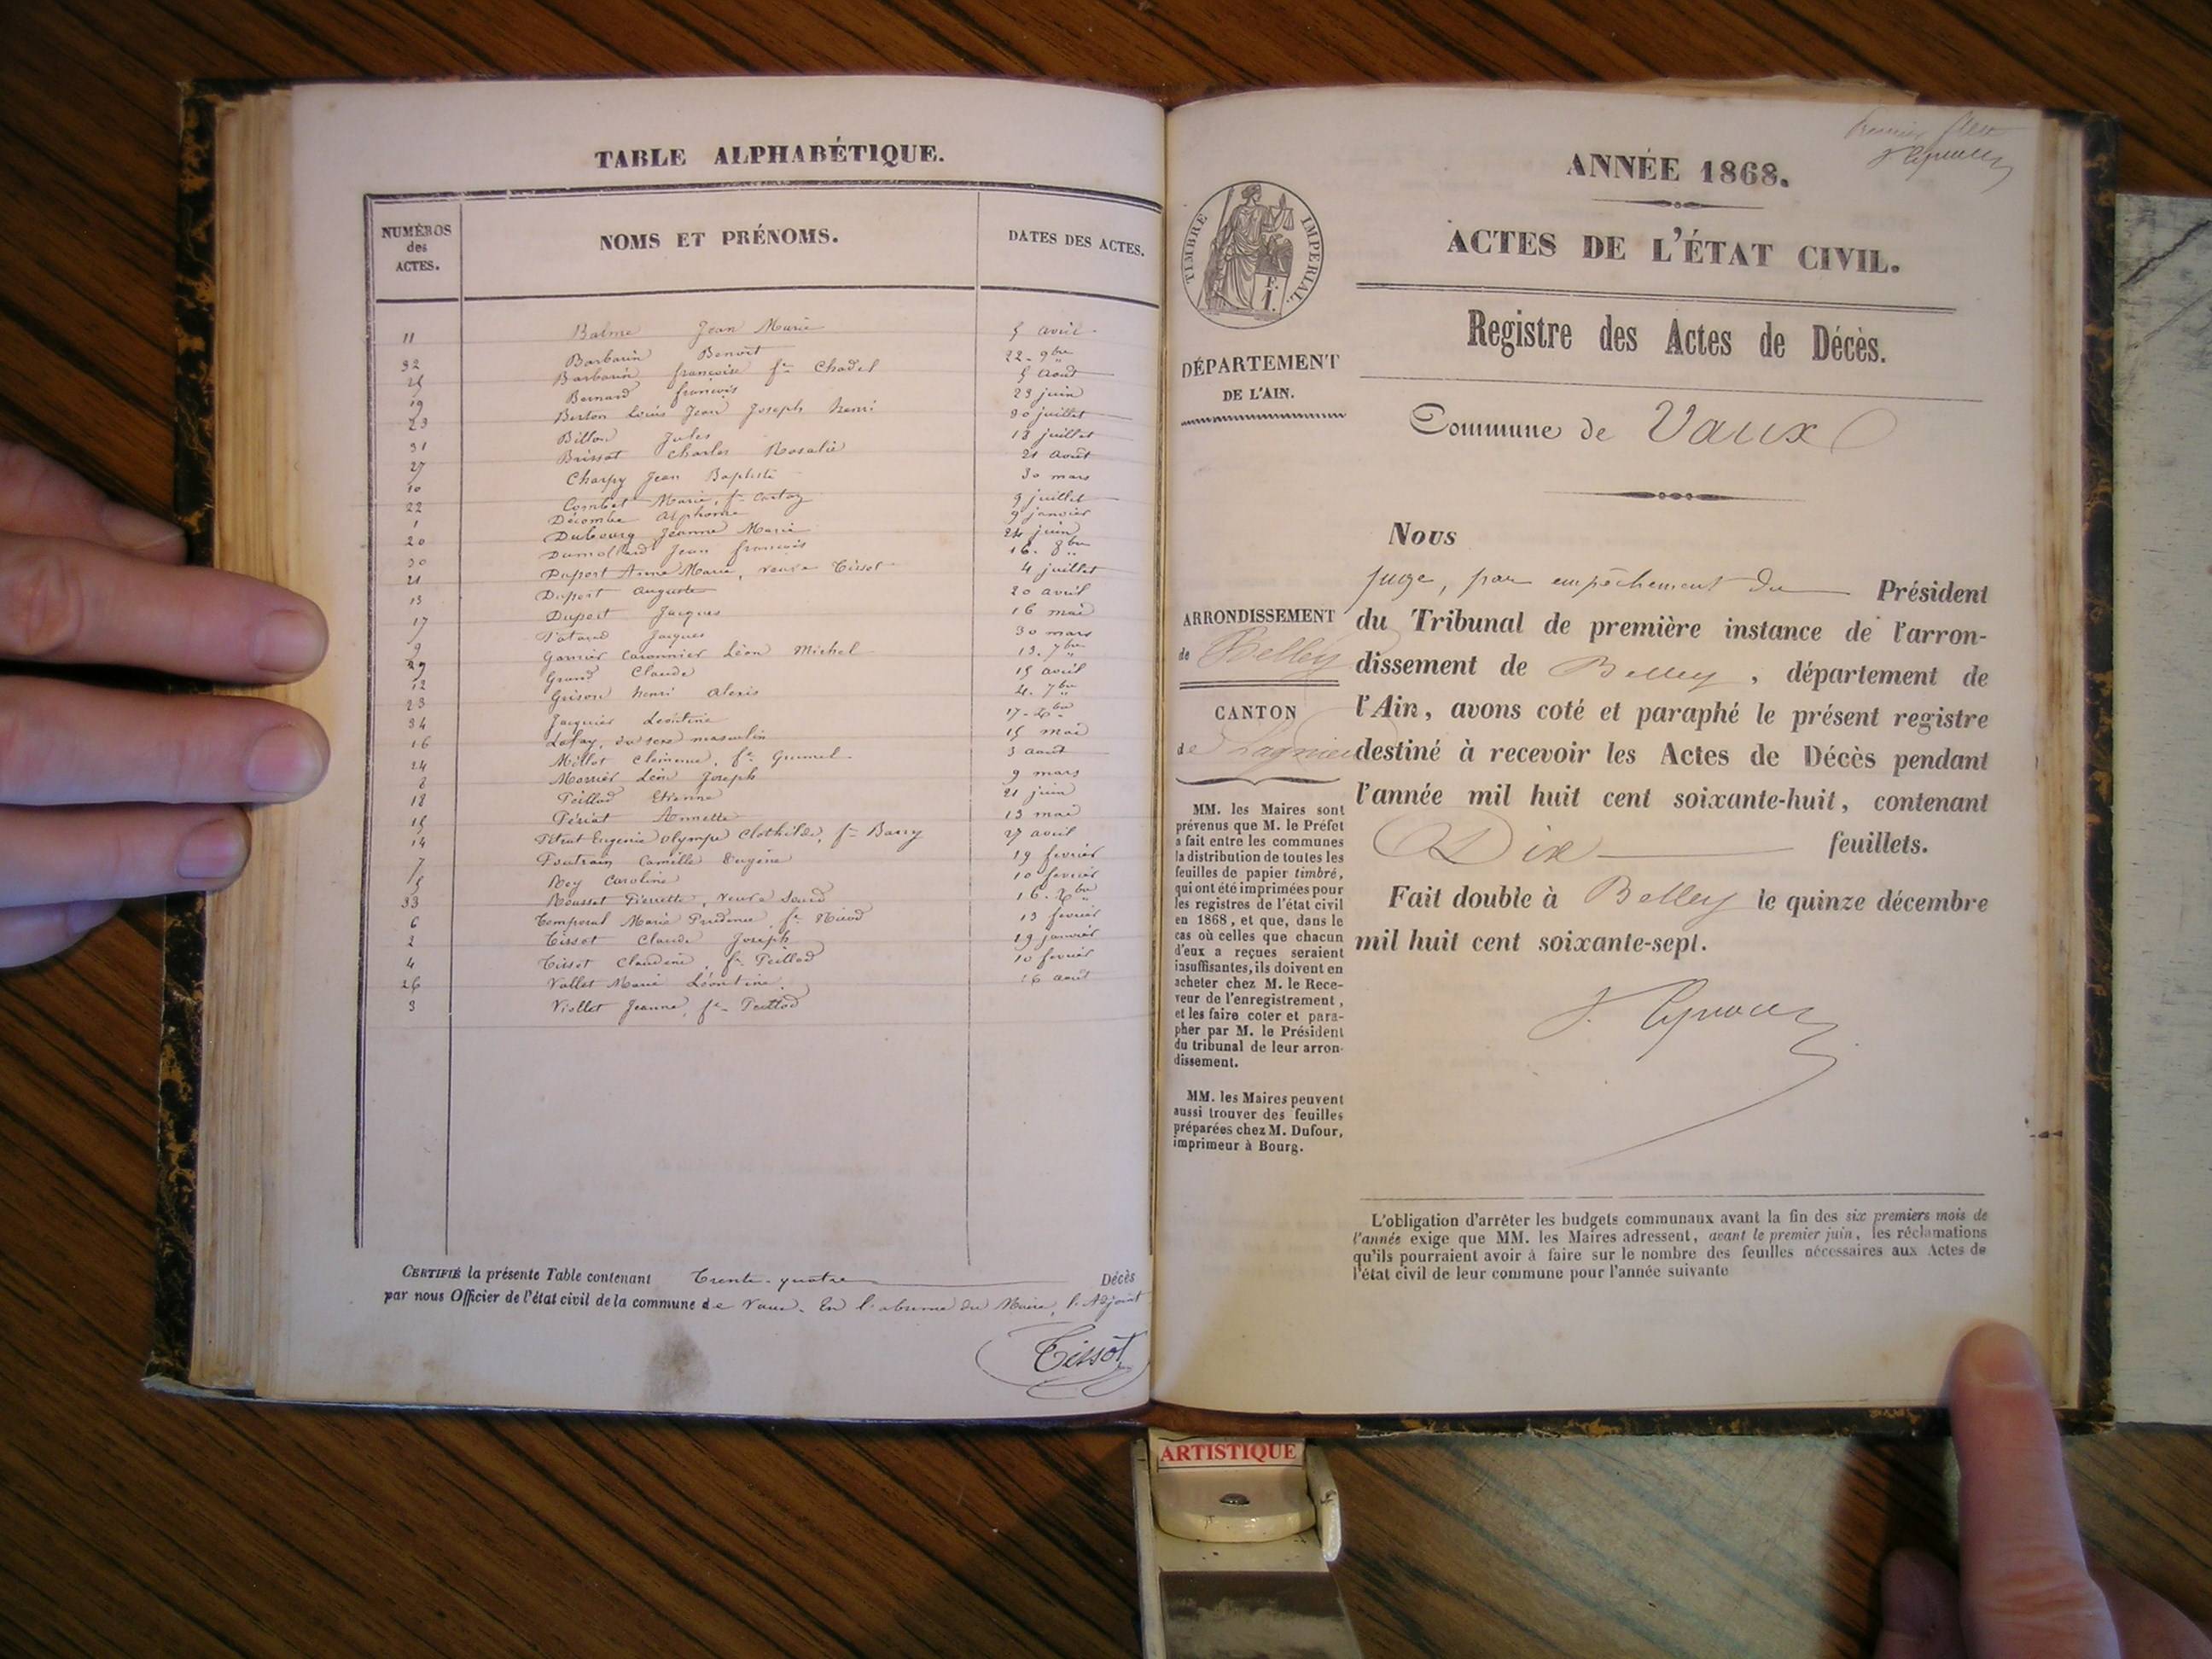 TABLE ALPHABÉTIQUE.
NUMÉROS des ACTES.
NOMS ET PRÉNOMS.
DATES DES ACTES.
11 Balme Jean Marie 5 avril
32 Barbarin Benoit 22 9bre
25 Barbarin françoise fe Chadel 5 Août
19 Bernard françois 23 juin
23 Berton Louis Jean Joseph henri 30 juillet
31 Billon Jules 13 juillet
27 Brissot Charles Rosalie 21 Août
10 Charpy Jean Baptiste 30 mars
22 Combet Marie, fe 9 juillet
1 Décombe Alphonse 9 janvier
20 Dubourg Jeanne Marie 24 juin
30 Dumollard Jean françois 16. 8bre
21 Duport Anne Marie, veuve Tissot 4 juillet
13 Duport Auguste 20 avril
17 Duport Jacques 16 mai
9 Jacques 30 mars
29 Garnier Léon Michel 13. 7bre
12 Grand Claude 15 avril
23 Grison henri Alexis 4. 7bre
34 Jacquier Léontine 17
16 Lafay, du sexe masculin 15 mai
24 Millot Clémence, fe Grumel 3 août
8 Morrier Léon Joseph 9 mars
18 Peillod Etienne 21 juin
15 Périat Annette 13 mai
14 Pétrat Eugénie Olympe Clothilde, fe Barry 27 avril
7 Poutrain Camille Eugène 19 fevrier
5 Rey Caroline 10 fevrier
33 Rousset Pierrette, veuve 16
6 Temporal Marie Prudence fe 13 fevrier
2 Tissot Claude Joseph 19 janvier
4 Tissot Claudine, fe Peillod 10 fevrier
26 Vallet Marie Léontine 16 août
3 Viollet Jeanne, fe Peillod
CERTIFIÉ la présente Table contenant Trente-quatre Décès
par nous Officier de l'état civil de la commune de Vaux. En l'absence du Maire, l'Adjoint
Tissot
Premier
ANNÉE 1868.
ACTES DE L'ÉTAT CIVIL.
TIMBRE IMPÉRIAL.
Registre des Actes de Décès.
DÉPARTEMENT
DE L'AIN.
Commune de Vaux
Nous
juge, par empêchement du Président
ARRONDISSEMENT
de Belley
du Tribunal de première instance de l'arron-
dissement de Belley, département de
l'Ain, avons coté et paraphé le présent registre
CANTON
de Lagnieu
destiné à recevoir les Actes de Décès pendant
l'année mil huit cent soixante-huit, contenant
Dix feuillets.
Fait double à Belley le quinze décembre
mil huit cent soixante-sept.
MM. les Maires sont
prévenus que M. le Préfet
a fait entre les communes
la distribution de toutes les
feuilles de papier timbré,
qui ont été imprimées pour
les registres de l'état civil
en 1868, et que, dans le
cas où celles que chacun
d'eux a reçues seraient
insuffisantes, ils doivent en
acheter chez M. le Rece-
veur de l'enregistrement,
et les faire coter et para-
pher par M. le Président
du tribunal de leur arron-
dissement.
MM. les Maires peuvent
aussi trouver des feuilles
préparées chez M. Dufour,
imprimeur à Bourg.
L'obligation d'arrêter les budgets communaux avant la fin des six premiers mois de
l'année exige que MM. les Maires adressent, avant le premier juin, les réclamations
qu'ils pourraient avoir à faire sur le nombre des feuilles nécessaires aux Actes de
l'état civil de leur commune pour l'année suivante
ARTISTIQUE